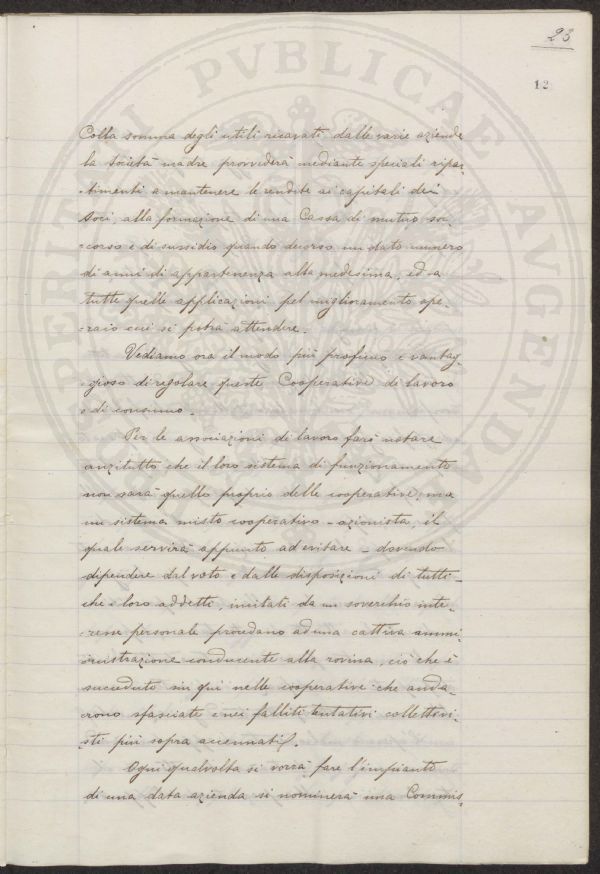 23
12
Colla somma degli utili ricavati dalle varie aziende
la Società madre provvederà mediante speciali ripar-
-timenti a mantenere le rendite ai capitali dei
soci, alla formazione di una Cassa di mutuo soc-
-corso e di sussidio quando decorso un dato numero
di anni di appartenenza alla medesima, ed a
tutte quelle applicazioni pel miglioramento ope-
-raio cui si potrà attendere.
Vediamo ora il modo più proficuo e vantag-
-gioso di regolare queste Cooperative di lavoro
e di consumo.
Per le associazioni di lavoro farò notare
anzitutto che il loro sistema di funzionamento
non sarà quello proprio delle cooperative, ma
un sistema misto cooperativo-azionista, il
quale servirà appunto ad evitare - dovendo
dipendere dal voto e dalle disposizioni di tutti
che i loro addetti, invitati da un soverchio inte-
-resse personale procedano ad una cattiva ammi-
-nistrazione conducente alla rovina, ciò che è
succeduto sin qui nelle cooperative che anda-
-rono sfasciate e nei falliti tentativi collettivi-
-sti più sopra accennati.
Ogni qualvolta si vorrà fare l'impianto
di una data azienda si nominerà una Commis-
PERITATI PVBLICAE AVGENDAE